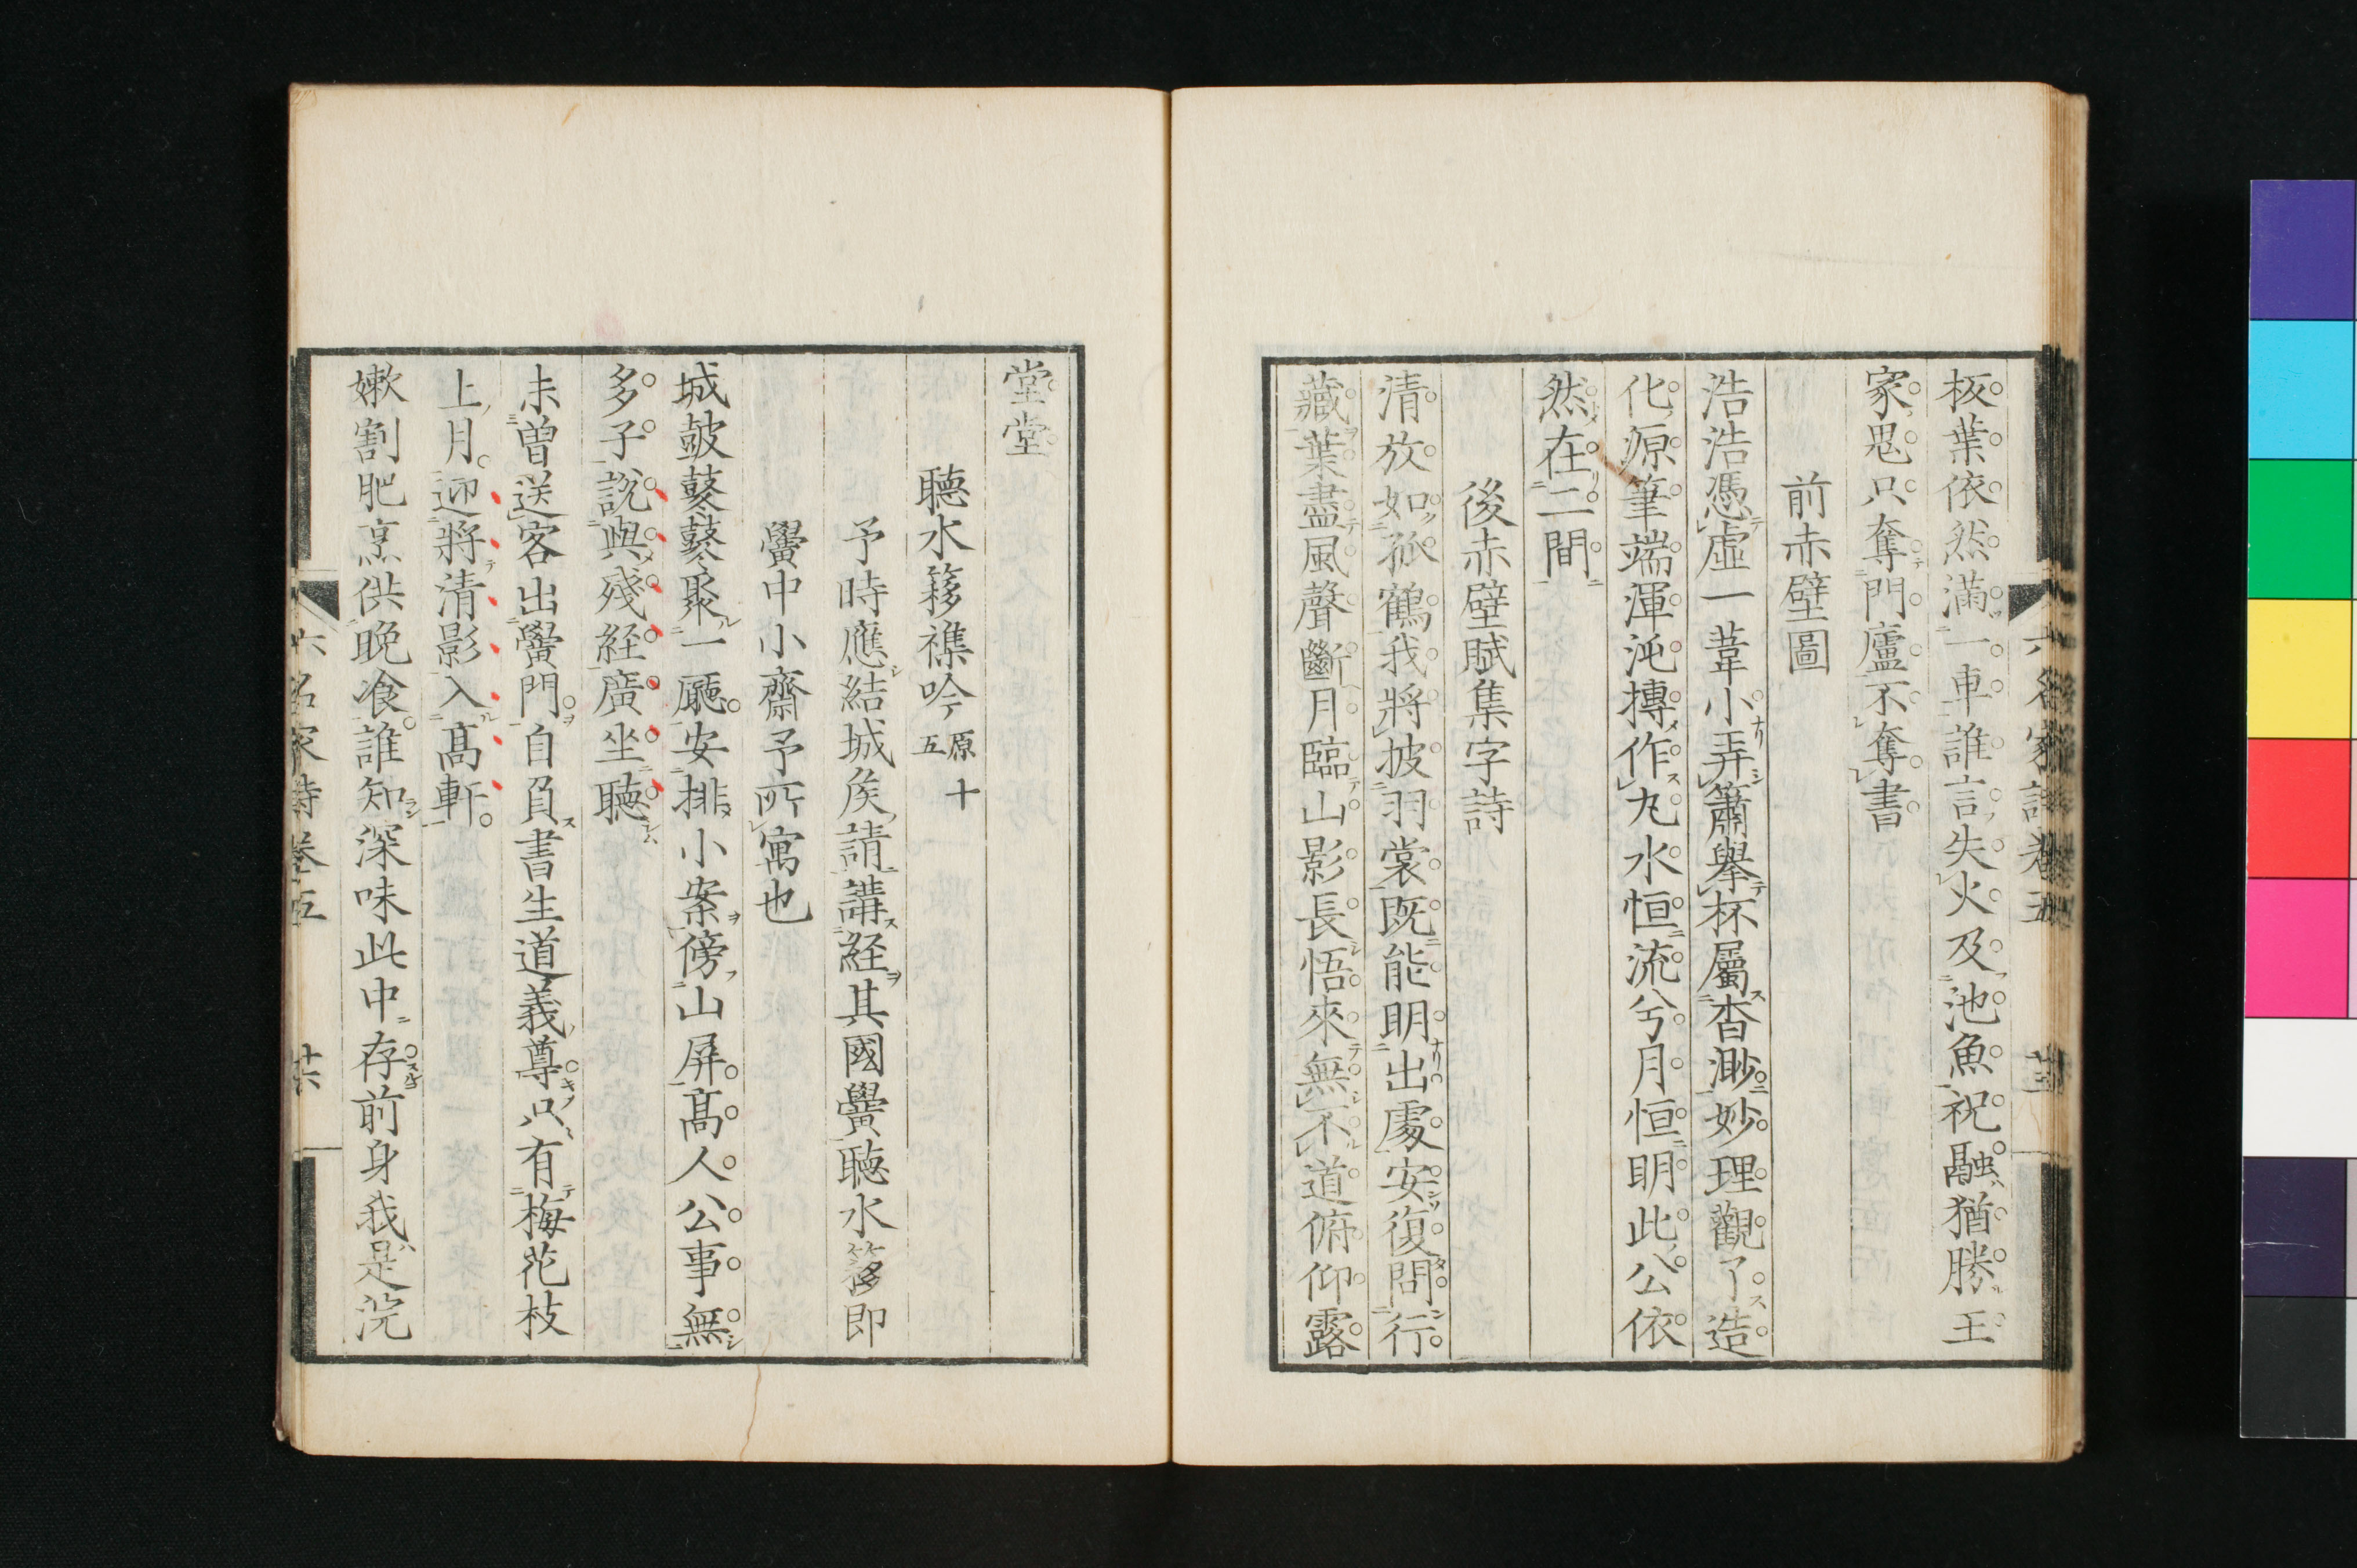 板葉依然滿一車誰言失火及池魚祝融猶勝王
家鬼只奪門廬不奪書
前赤壁圖
浩浩憑虛一葦小弄簫舉杯屬杳渺妙理觀了造
化源筆端渾沌摶作丸水恒流兮月恒明此公依
然在二間
後赤壁賦集字詩
清放如孤鶴我將披羽裳既能明出處安復問行
藏葉盡風聲斷月臨山影長悟來無不道俯仰露
堂堂
聽水簃襍吟原十五
予時應結城矦請講経其國黌聽水簃即
黌中小齋予所寓也
城皷鼕鼕聚一廳安排小案傍山屏高人公事無
多子說與殘経廣坐聽
未曽送客出黌門自負書生道義尊只有梅花枝
上月迎將清影入高軒
嫩割肥烹供晚飡誰知深味此中存前身我是浣
六名家詩卷五 廿六